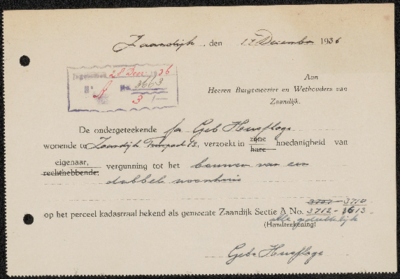 Zaandijk, den 17 December 1936
Ingekomen 21 Dec 1936
No.
3
Aan
Heeren Burgemeester en Wethouders van
Zaandijk.
De ondergeteekende fa. Gebr Heijsloge
wonende te Zaandijk verzoekt in zijne hare hoedanigheid van
eigenaar, rechthebbende, vergunning tot het bouwen van een
dubbele woonhuis
op het perceel kadastraal bekend als gemeente Zaandijk Sectie A No. 3712 - 3613
alle gedeeltelijk
(Handteekening)